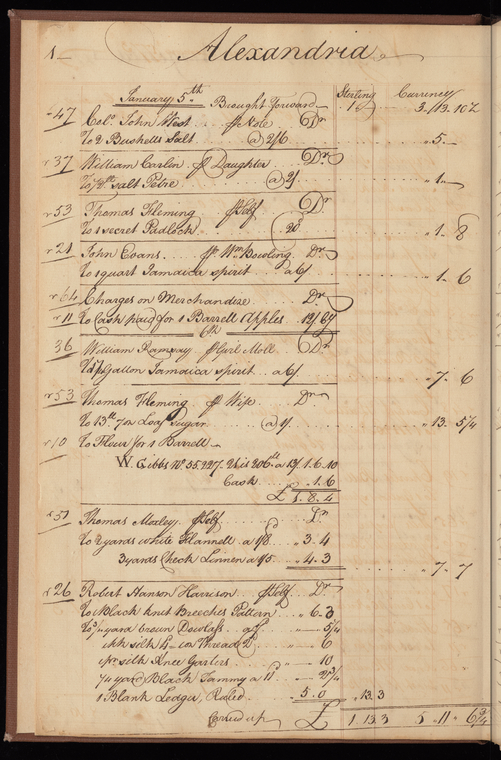 1 Alexandria
Sterling Currency
January 5th Brought Forward 3 13 10½
47 Colo. John West ⅌ Note Dr
To 2 Bushells Salt @ 2/6 " 5 —
37 William Carlin ⅌ Daughter Dr
To ½ lb Salt Petre @ 2/ " 1 —
53 Thomas Fleming ⅌ Self Dr
To 1 secret Padlock 20d " 1 8
21 John Evans ⅌ Wm Bowling Dr
To 1 quart Jamaica spirit a 6/ " 1 6
64 Charges on Merchandize Dr
11 To Cash paid for 1 Barrell Apples
6th
36 William Ramsay ⅌ Girl Moll Dr
Gallon Jamaica spirit a 6/ " 7 6
53 Thomas Fleming ⅌ Wife Dr
To 13 lb 7 oz Loaf Sugar @ 1/ " 13 5¼
10 To Flour for 1 Barrell
W. Gibbs No 55, 227. 21 is 206 lb a 13/ 1 . 6 . 10
Cash " 1 . 6
£ 1 . 8 . 4
51 Thomas Moxley ⅌ Self Dr
To 2 yards white Flannell a 1/8 " 3 . 4
3 yards Check Linnen a 1/5 " 4 . 3 " 7 7
26 Robert Hanson Harrison ⅌ Self Dr
To Black knit Breeches Pattern " 6 . 3
yard brown Dowlass 5¼
silk Thread 6
1 pr silk Knee Garters " — 10
yard Black Tammy a 11d
1 Blank Ledger, Ruled " 5 . 0 " 13 . 3
Carried up £ 1 13 3 5 11 6¾